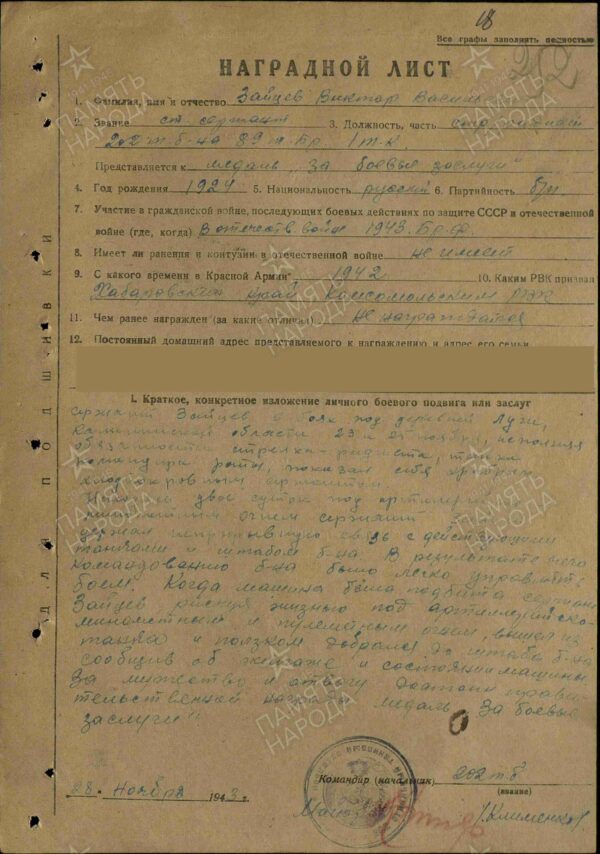 18
Все графы заполнять полностью
202
НАГРАДНОЙ ЛИСТ
1. Фамилия, имя и отчество Зайцев Виктор
2. Звание ст. сержант 3. Должность, часть
202 т.б-на 89 т.бр. 1 т.к.
Представляется к медаль "За боевые заслуги"
4. Год рождения 1924 5. Национальность русский 6. Партийность б/п
7. Участие в гражданской войне, последующих боевых действиях по защите СССР и отечественной
войне (где, когда) В отечеств войне 1943
8. Имеет ли ранения и контузии в отечественной войне не имеет
9. С какого времени в Красной Армии 1942 10. Каким РВК призван
Хабаровский край Комсомольским РВК
11. Чем ранее награжден (за какие отличия) Не награждался
12. Постоянный домашний адрес представляемого к награждению и адрес его семьи
I. Краткое, конкретное изложение личного боевого подвига или заслуг
сержант Зайцев в боях под деревней Лужи,
Калининской области 23 и 25 ноября, исполняя
обязанности стрелка-радиста, танка
командира роты, показал себя храбрым
хладнокровным
двое суток под
минометным огнем сержант
держал непрерывную связь с действующими
танками и штабом б-на. В результате чего
командованию б-на было легко управлять
боем. Когда машина была подбита сержант
Зайцев рискуя жизнью под артиллерийско-
минометным и пулеметным огнем, вышел из
танка и ползком добрался до штаба б-на
сообщив об экипаже и состоянии машины.
За мужество и отвагу достоин правительственной
награды медаль За боевые
заслуги"
Командир (начальник) 202 т.б
(звание)
28 ноября 1943 г.
/Клименко/
ДЛЯ ПОДШИВКИ
ПАМЯТЬ НАРОДА